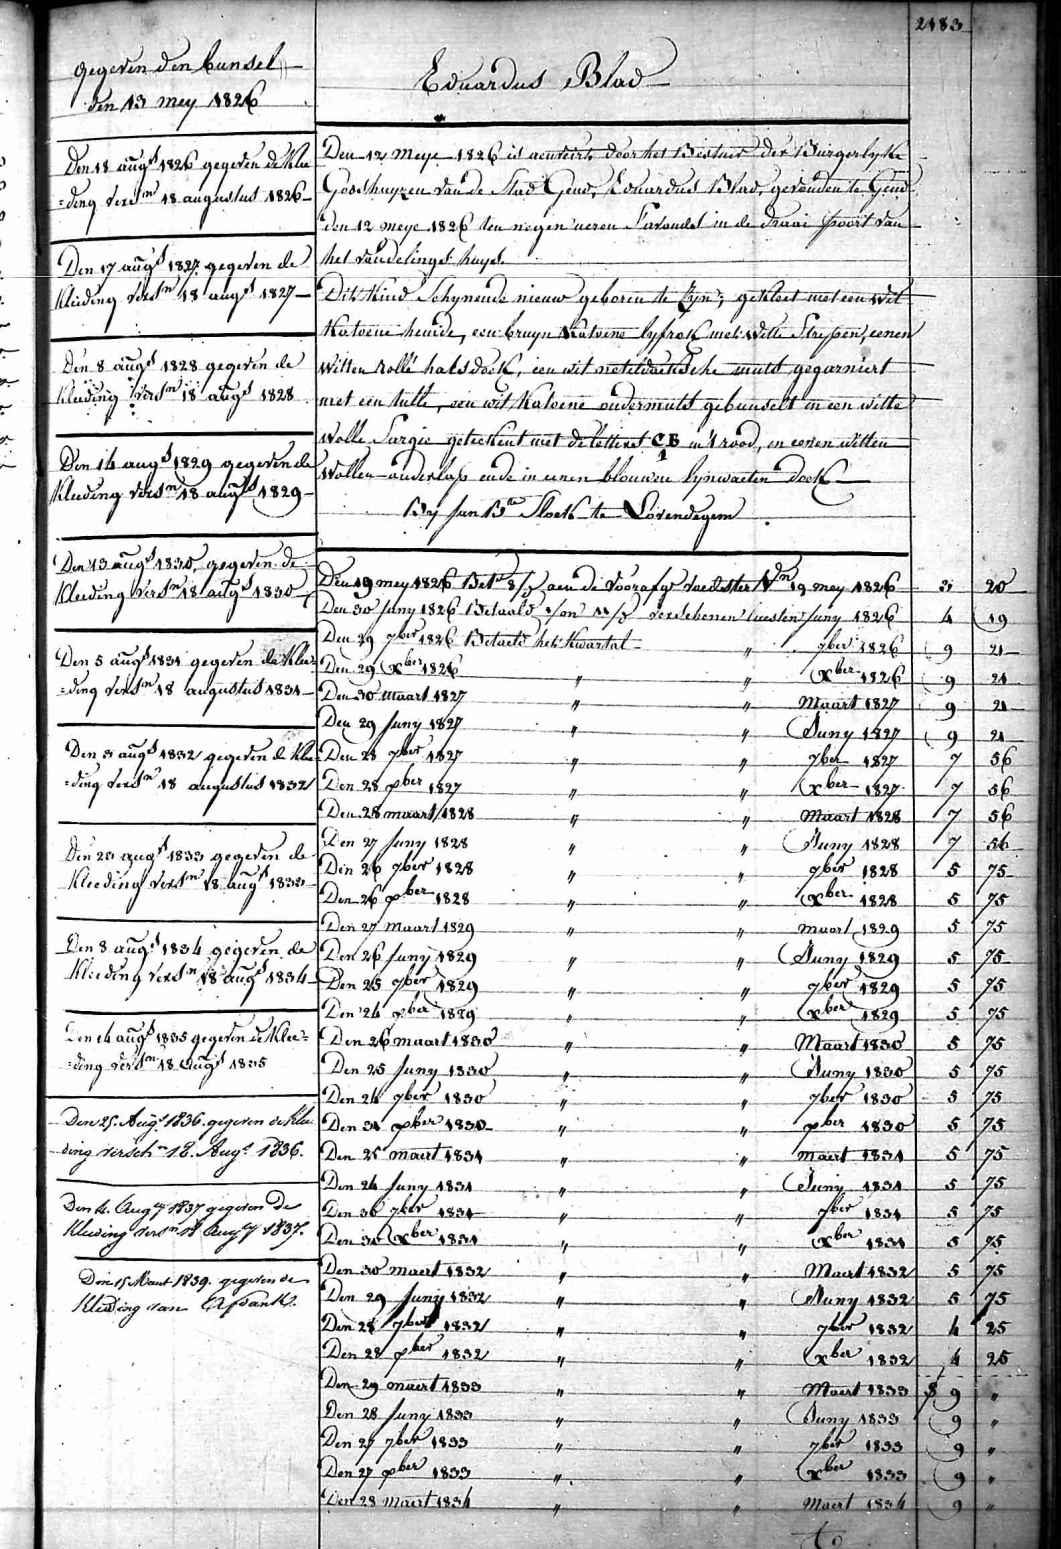 2183
gegeven den bunsel
den 13 mey 1826
Den 18 augs 1826 gegeven de klee
=ding versn 18 augustus 1826
Den 17 augs 1827 gegeven de
kleeding versn 18 augs 1827
Den 8 augs 1828 gegeven de
kleeding versn 18 augs 1828
Den 14 augs 1829 gegeven de
kleeding versn 18 augs 1829
Den 13 augs 1830 gegeven de
kleeding versn 18 augs 1830
Den 5 augs 1831 gegeven de klee
=ding versn 18 augustus 1831
Den 3 augs 1832 gegeven de klee
=ding versn 18 augustus 1832
Den 23 augs 1833 gegeven de
kleeding versn 18 augs 1833
Den 8 augs 1834 gegeven de
kleeding versn 18 augs 1834
Den 14 augs 1835 gegeven de klee=
=ding versn 18 augs 1835
Den 25. Augs 1836. gegeven de klee
ding versch n 18. Augs 1836.
Den 4. Augs 1837 gegeven de
kleeding versn 18 Augs 1837.
Den 15 Maert 1839. gegeven de
kleeding van Afdank.
Eduardus Blad
Den 12 Meye 1826 is aenveird door het Bestuer der Burgerlyke
Godshuyzen van de Stad Gend, Eduardus Blad, gevonden te Gend
den 12 meye 1826 ten negen ueren s'avonds in de draai poort van
het vondelings huys.
Dit kind schynende nieuw geboren te zyn, gekleet met een wit
katoene hemde, een bruyn katoene lyfrok met witte strepen, eenen
witten rolle halsdoek, een wit neteldoeksche muts gegarniert
met een tulle, een wit katoene ondermuts gebunselt in een witte
wolle sargie geteekent met de letters CB in 't rood, en eenen witten
1
wollen onderlap ende in eenen blouwen lynwaeten doek
By Jan Bte Sloek te Lovendegem
Den 19 mey 1826 Bet aen de voorafg voedster Vn 19 mey 1826 3 20
Den 30 Juny 1826 Betaald verschenen Juny 1826 4 19
Den 29 7ber 1826 Betaeld het kwartal " 7ber 1826 9 21
Den 29 Xber 1826 " " Xber 1826 9 21
Den 30 maart 1827 " " Maart 1827 9 21
Den 29 Juny 1827 " " Juny 1827 9 21
Den 28 7ber 1827 " " 7ber 1827 7 56
Den 28 Xber 1827 " " Xber 1827 7 56
Den 28 maart 1828 " " Maart 1828 7 56
Den 27 Juny 1828 " " Juny 1828 7 56
Den 26 7ber 1828 " " 7ber 1828 5 75
Den 26 Xber 1828 " " Xber 1828 5 75
Den 27 maart 1829 " " maart 1829 5 75
Den 26 Juny 1829 " " Juny 1829 5 75
Den 25 7ber 1829 " " 7ber 1829 5 75
Den 24 Xber 1829 " " Xber 1829 5 75
Den 26 maart 1830 " " Maart 1830 5 75
Den 25 Juny 1830 " " Juny 1830 5 75
Den 24 7ber 1830 " " 7ber 1830 5 75
Den 31 Xber 1830 " " Xber 1830 5 75
Den 25 maert 1831 " " maert 1831 5 75
Den 24 Juny 1831 " " Juny 1831 5 75
Den 30 7ber 1831 " " 7ber 1831 5 75
Den 30 Xber 1831 " " Xber 1831 5 75
Den 30 maert 1832 " " Maert 1832 5 75
Den 29 Juny 1832 " " Juny 1832 5 75
Den 28 7ber 1832 " " 7ber 1832 4 25
Den 28 Xber 1832 " " Xber 1832 4 25
Den 29 maert 1833 " " Maert 1833 9 "
Den 28 Juny 1833 " " Juny 1833 9 "
Den 27 7ber 1833 " " 7ber 1833 9 "
Den 27 Xber 1833 " " Xber 1833 9 "
Den 28 Maert 1834 " " Maert 1834 9 "